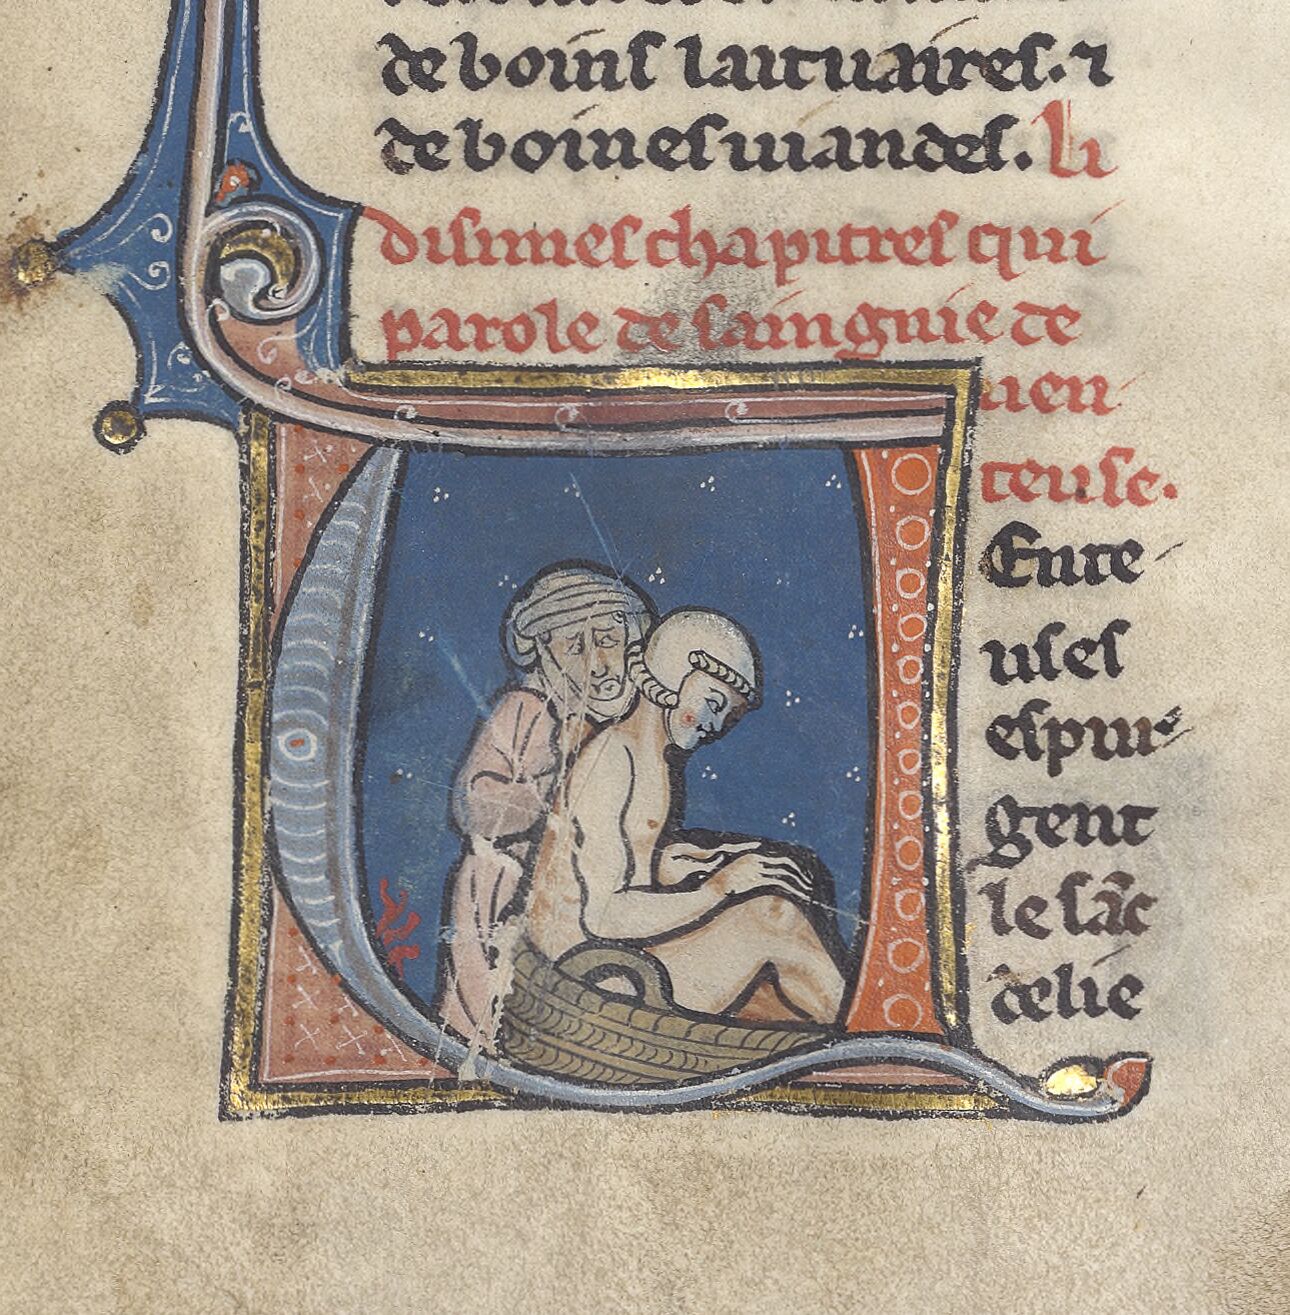 de boins laituaires. ⁊
de boines uiandes. li
disimes chapitres qui
parole de sainguie de
uen
teuse.
Ente
uses
espur
gent
le sāc
delie